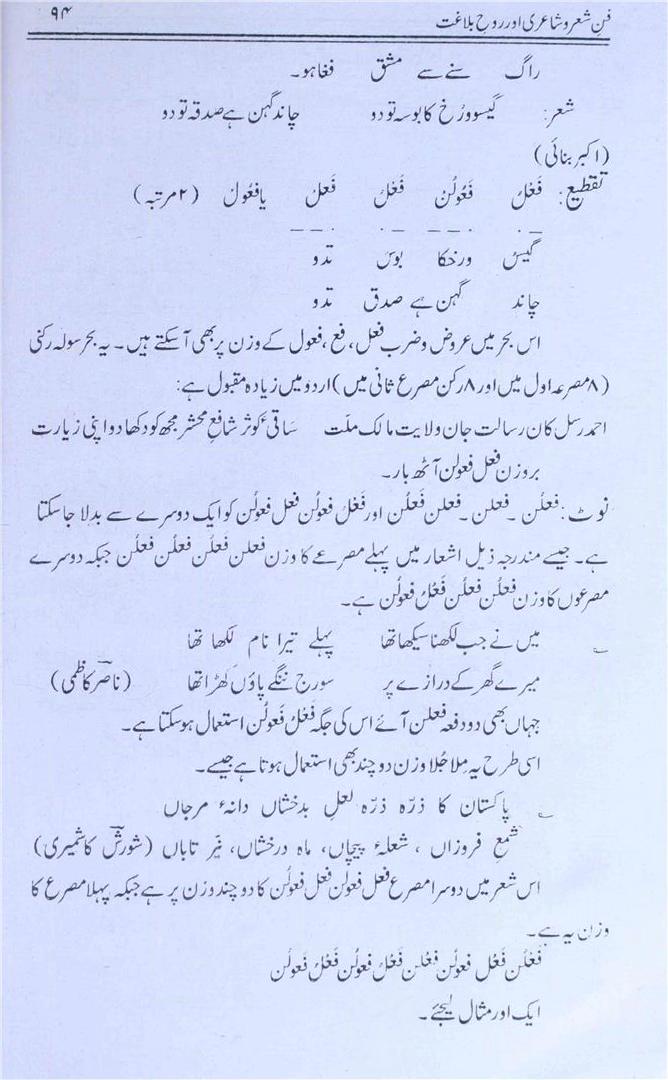 فنِ شعر و شاعری اور روحِ بلاغت ۹۴
راگ سنے سے مشق فغا ہو۔
شعر: گیسو و رُخ کا بوسہ تو دو چاند گہن ہے صدقہ تو دو
(اکبر بنائی)
تقطیع: فَعْلُ فَعُولُنْ فَعْلُ فَعَلْ یا فعُولْ (۲ مرتبہ)
گیسُ ورخکا بوسَ تدو
چاند گہن ہے صدق تدو
اس بحر میں عروض و ضرب فعل، فع، فعول کے وزن پر بھی آ سکتے ہیں۔ یہ بحر سولہ رکنی
(۸ مصرعہ اول میں اور ۸ رکن مصرع ثانی میں) اردو میں زیادہ مقبول ہے:
احمد رسل کان رسالت جان ولایت مالک ملّت ساقیٔ کوثر شافعِ محشر مجھ کو دکھا دو اپنی زیارت
بروزن فعل فعولن آٹھ بار۔
نوٹ: فعلُن ۔ فعلن ۔ فعلن فَعلُن اور فَعْلُ فعولُن فعل فعولُن کو ایک دوسرے سے بدلا جا سکتا
ہے۔ جیسے مندرجہ ذیل اشعار میں پہلے مصرعے کا وزن فعلن فعلُن فعلُن فعلُن جبکہ دوسرے
مصرعوں کا وزن فعلُن فعلُن فَعْلُ فعولُن ہے۔
؎ میں نے جب لکھنا سیکھا تھا پہلے تیرا نام لکھا تھا
میرے گھر کے درازے پر سورج ننگے پاؤں کھڑا تھا (ناصرؔ کاظمی)
جہاں بھی دو دفعہ فعلن آئے اس کی جگہ فَعْلُ فَعولُن استعمال ہو سکتا ہے۔
اسی طرح یہ مِلا جُلا وزن دو چند بھی استعمال ہوتا ہے جیسے۔
؎ پاکستان کا ذرّہ ذرّہ لعلِ بدخشاں دانۂ مرجاں
شمعِ فروزاں ، شعلۂ پیچاں، ماہِ درخشاں، نیّرِ تاباں (شورشؔ کاشمیری)
اس شعر میں دوسرا مصرع فعل فعولن فعل فعولُن کا دو چند وزن پر ہے جبکہ پہلا مصرع کا
وزن یہ ہے۔
فَعْلُن فَعْلُ فعولُن فعْلن فَعْلُ فعولُن فَعْلُ فعولُن
ایک اور مثال لیجئے۔